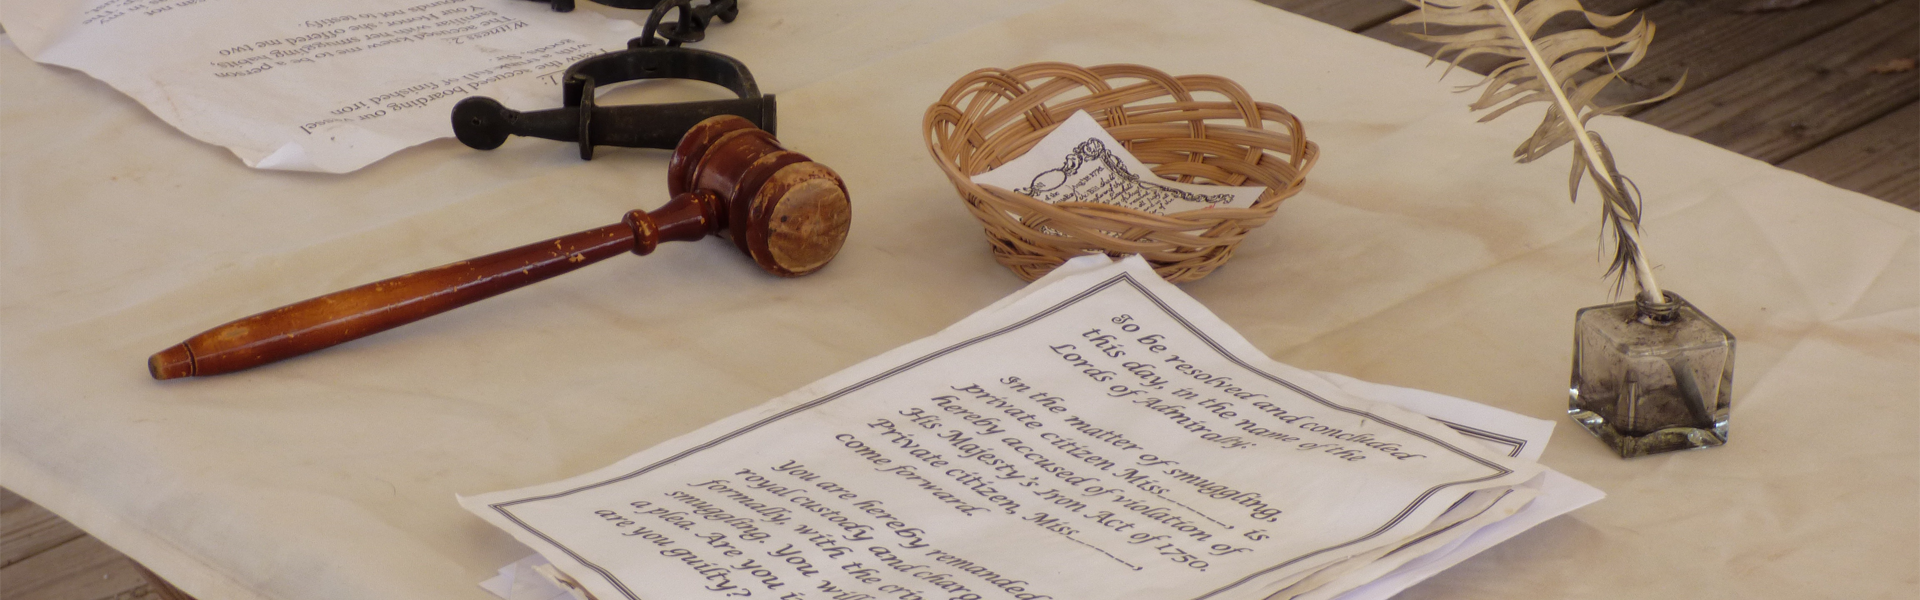 :1
I saw the accused boarding our vessel
with a trunk full of finished iron
goods, Sir
Witness 2:
The accused knew me to be a person
familiar with her smuggling habits,
Your Honor, she offered me two
pounds not to testify.
can not
in my
To be resolved and concluded
this day, in the name of the
Lords of Admiralty:
In the matter of smuggling,
private citizen Miss________, is
hereby accused of violation of
His Majesty's Iron Act of 1750.
Private citizen, Miss________,
come forward.
You are hereby remanded
royal custody and charg
formally, with the cri
smuggling. You will
a plea. Are you i
are you guilty?